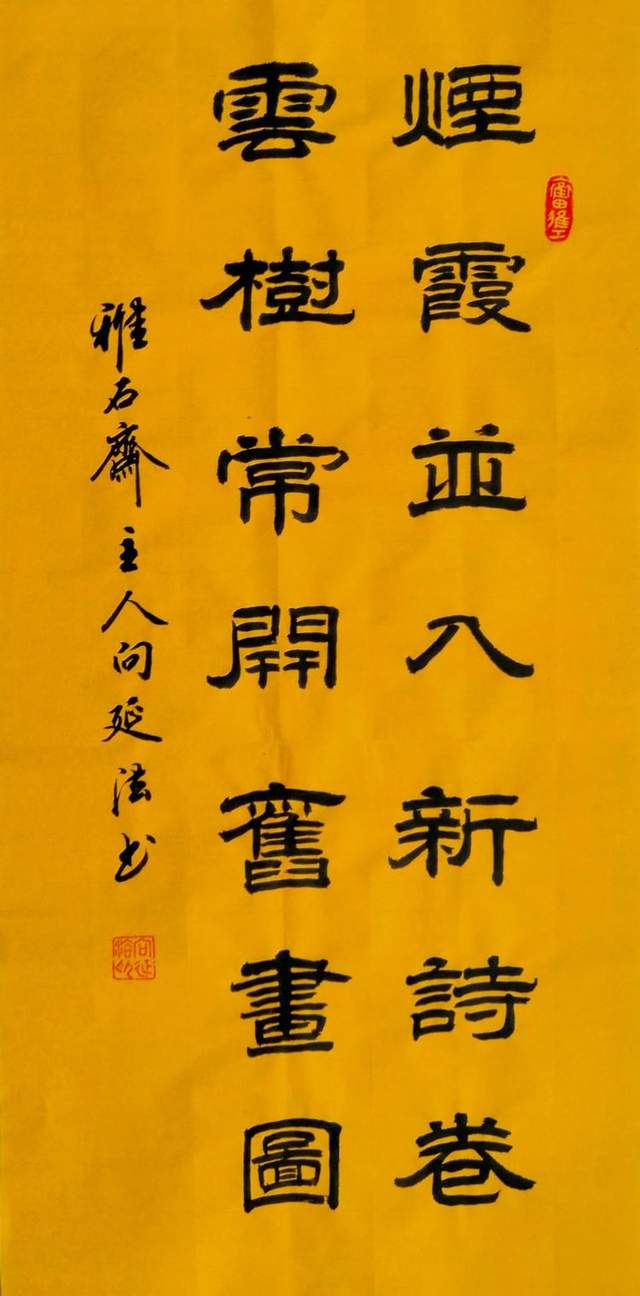 煙霞並入新詩卷
雲樹常開舊畫圖
雅石齋主人向延法书